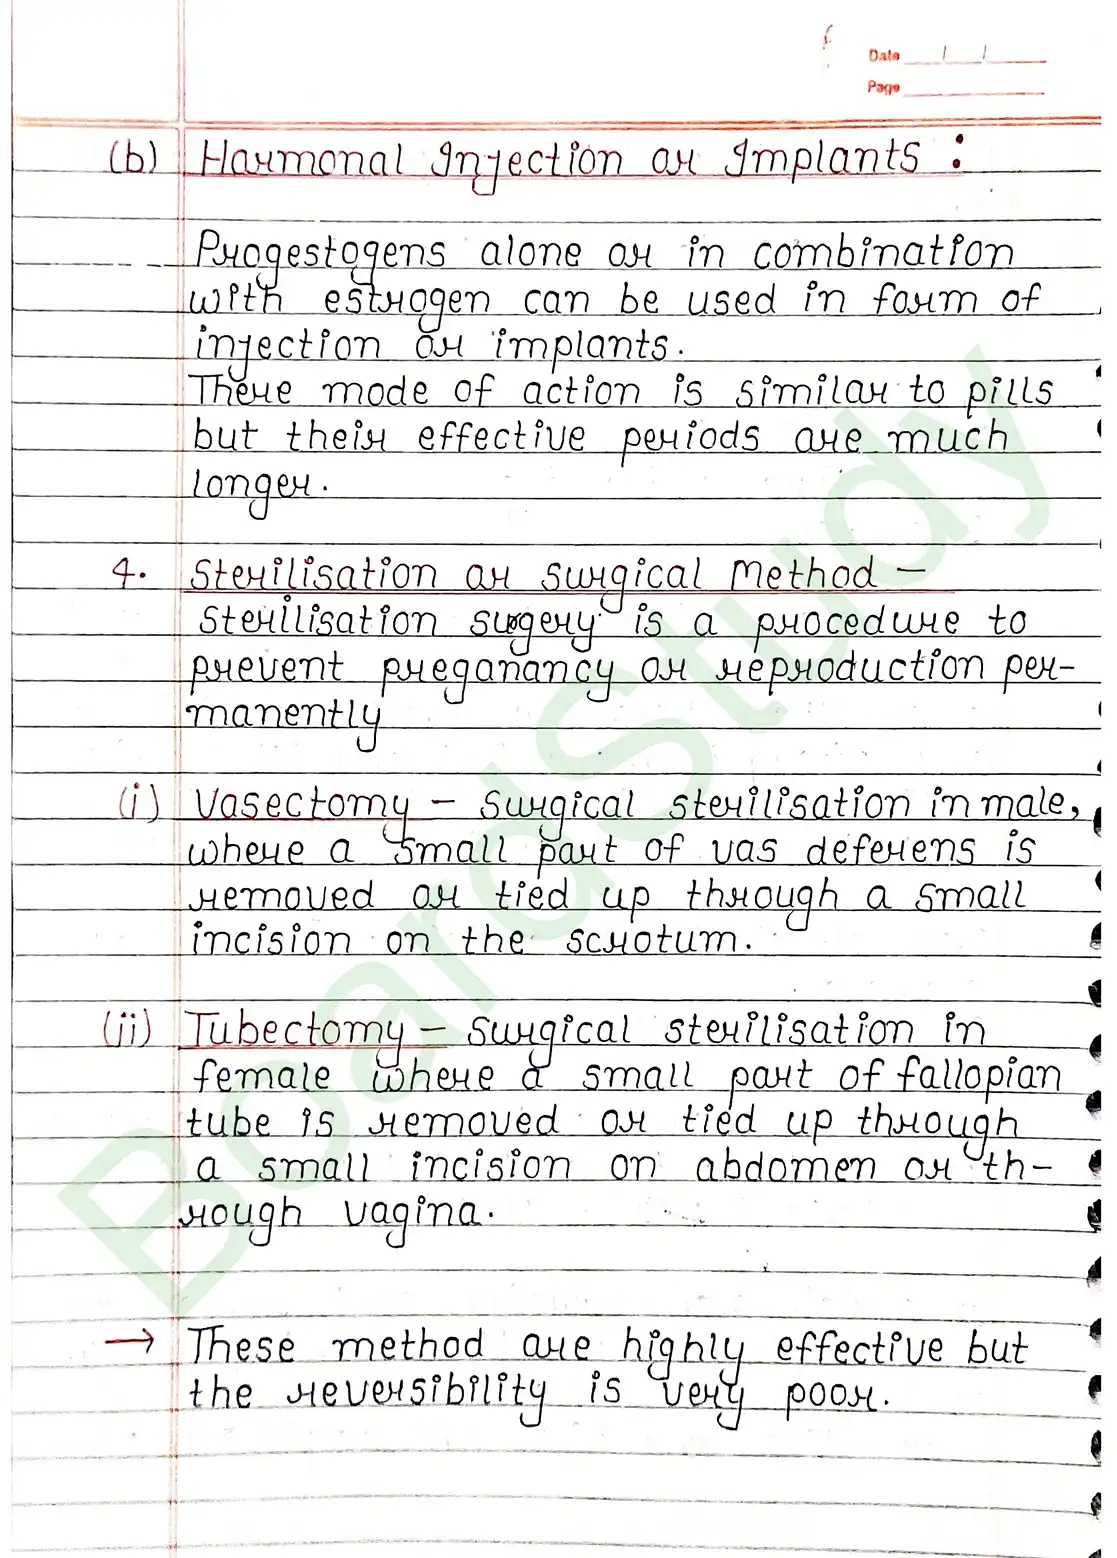 Date / /
Page
(b) Harmonal Injection or Implants :
Progestogens alone or in combination
with estrogen can be used in form of
injection or implants.
There mode of action is similar to pills
but their effective periods are much
longer.
4. Sterilisation or Surgical Method –
Sterilisation surgery is a procedure to
prevent preganancy or reproduction per-
manently
(i) Vasectomy – Surgical sterilisation in male,
where a small part of vas deferens is
removed or tied up through a small
incision on the scrotum.
(ii) Tubectomy – Surgical sterilisation in
female where a small part of fallopian
tube is removed or tied up through
a small incision on abdomen or th-
rough vagina.
→ These method are highly effective but
the reversibility is very poor.
BoardStudy